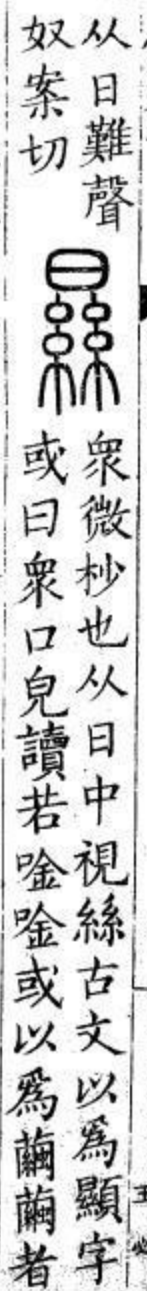 从日難聲
奴案切
㬎
衆微杪也从日中視絲古文以爲顯字
或曰衆口皃讀若唫唫或以爲繭繭者